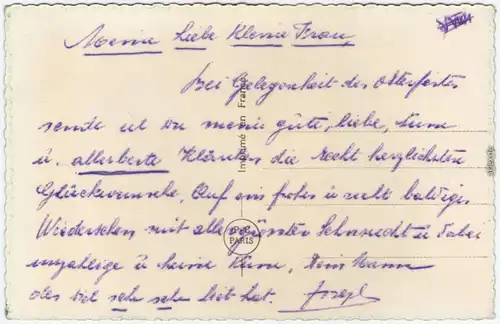 Meine Liebe Kleine Frau,
Bei Gelegenheit des Osterfestes
sende ich Du meine gute, liebe,
u. allerbeste die recht herzlichsten
Glückwünsche, Auf ein frohes u recht baldiges
Wiedersehen mit aller Sehnsucht u
unzählige u Dein Mann
der Viel sehr sehr lieb hat. Josef
Imprimé en France
PARIS